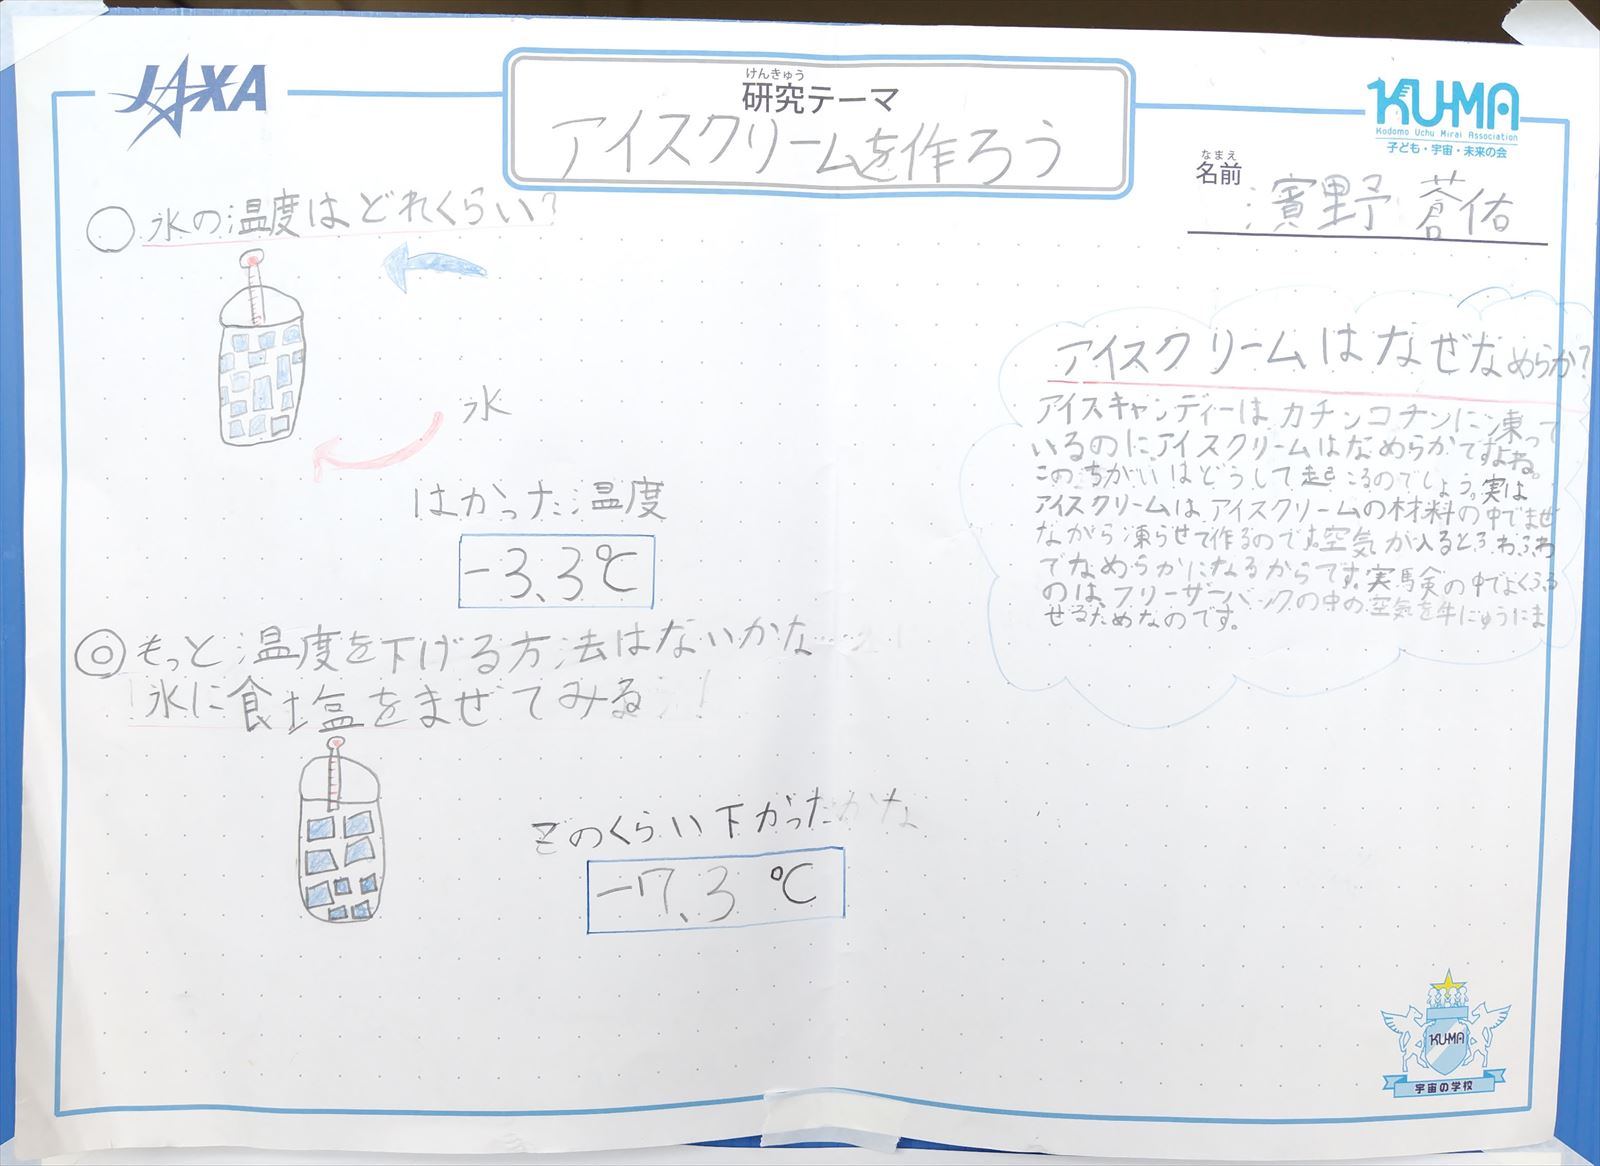 JAXA
けんきゅう
研究テーマ
アイスクリームを作ろう
KU-MA
Kodomo Uchu Mirai Association
子ども・宇宙・未来の会
なまえ
名前
濱野 蒼佑
氷の温度はどれくらい?
氷
はかった温度
-3.3℃
◎もっと温度を下げる方法はないかな
氷に食塩をまぜてみる!
どのくらい下がったかな
-7.3℃
アイスクリームはなぜなめらか?
アイスキャンディーはカチンコチンに凍って
いるのにアイスクリームはなめらかですよね。
このちがいはどうして起こるのでしょう。実は
アイスクリームは、アイスクリームの材料の中でまぜ
ながら凍らせて作るのです。空気が入るとふわふわ
でなめらかになるからです。実験の中でよくふる
のはフリーザーバックの中の空気を牛にゅうにま
せるためなのです。
KU-MA
宇宙の学校